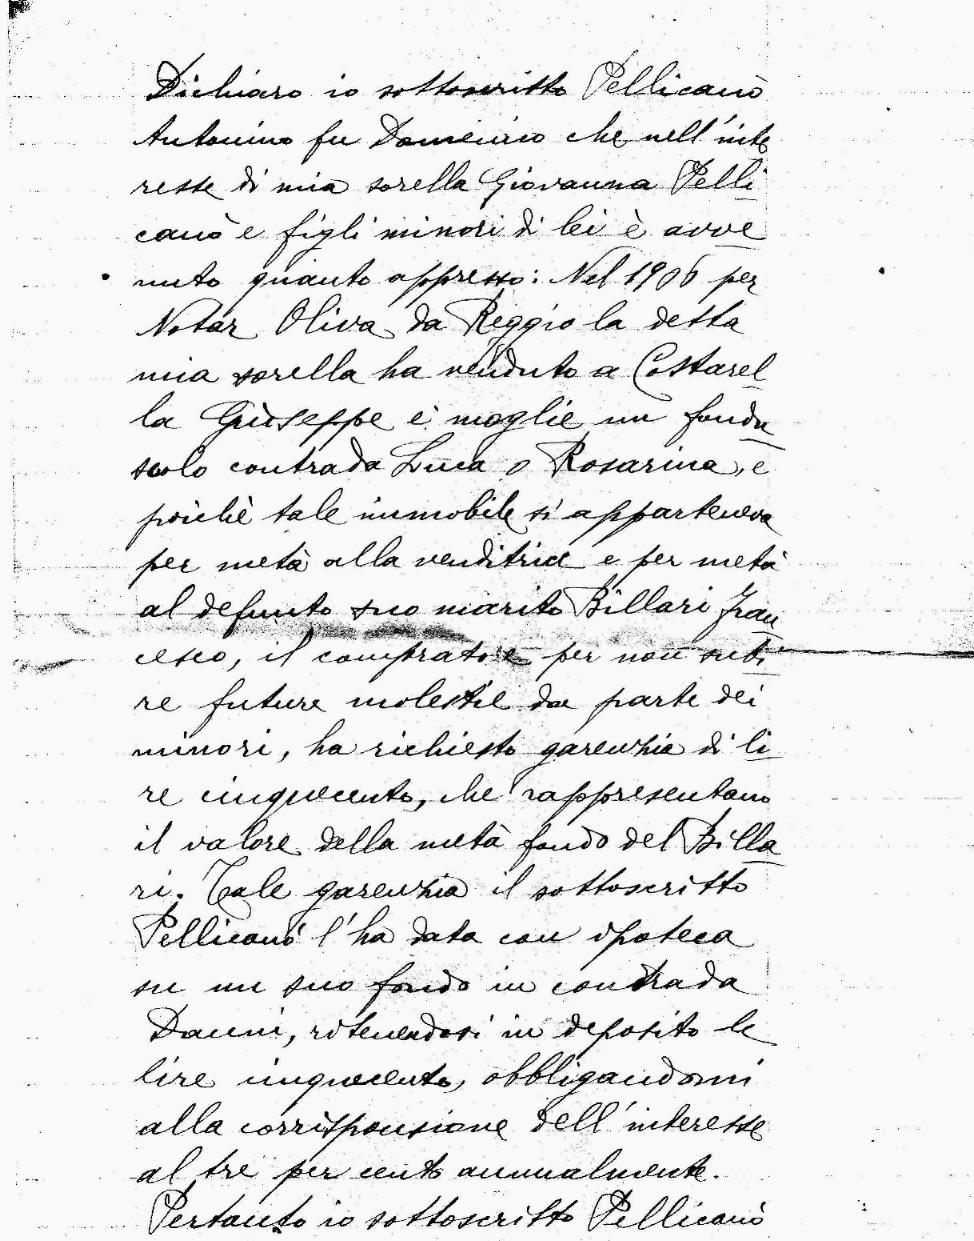 Dichiaro io sottoscritto Pellicanò
Antonino fu Domenico che nell'inte
resse di mia sorella Giovanna Pelli
canò e figli minori di lei è avve
nuto quanto appresso: Nel 1906 per
Notar Oliva da Reggio la detta
mia sorella ha venduto a Costarel
la Giuseppe e moglie un fondu
scolo contrada Luca o Rosarina, e
poichè tale immobile si apparteneva
per metà alla venditrice e per metà
al defunto suo marito Billari Fran
cesco, il compratore per non subi
re future molestie da parte dei
minori, ha richiesto garenzia di li
re cinquecento, che rappresentano
il valore della metà fondo del Billa
ri. Tale garenzia il sottoscritto
Pellicanò l'ha data con ipoteca
su un suo fondo in contrada
Dauni, ritenendosi in deposito le
lire cinquecento, obbligandomi
alla corrisponsione dell'interesse
al tre per cento annualmente.
Pertanto io sottoscritto Pellicanò